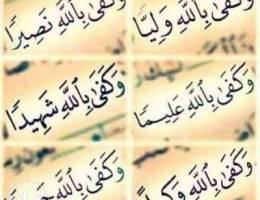 وَكَفَىٰ بِاللَّهِ وَلِيًّا
وَكَفَىٰ بِاللَّهِ نَصِيرًا
وَكَفَىٰ بِاللَّهِ عَلِيمًا
وَكَفَىٰ بِاللَّهِ شَهِيدًا
وَكَفَىٰ بِاللَّهِ وَكِيلًا
وَكَفَىٰ بِاللَّهِ